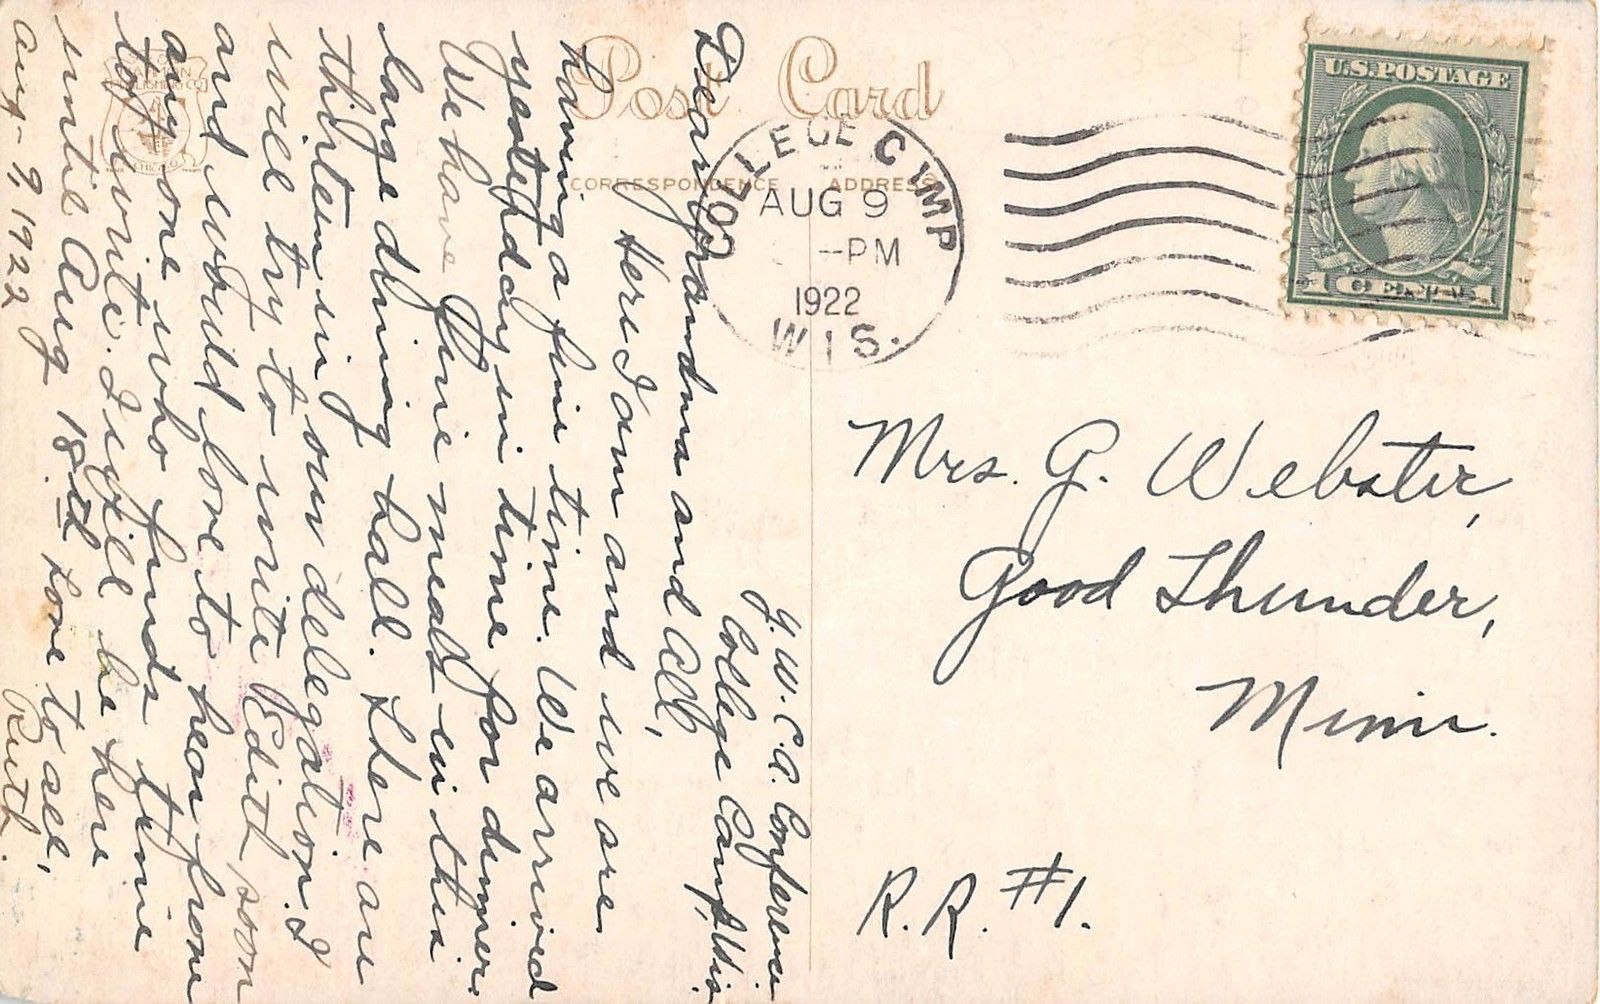 Post Card
CORRESPONDENCE
ADDRESS
U.S. POSTAGE
1 CENT 1
COLLEGE CAMP
AUG 9
--PM
1922
WIS.
Y.W.C.A. Conference
College Camp, Wis.
Dear Grandma and All,
Here I am and we are
having a fine time. We arrived
yesterday in time for dinner.
We have fine meals in this
large dining hall. There are
thirteen in our delegation. I
will try to write Edith soon
and would love to hear from
any one who finds time
to write. I will be here
until Aug 18th Love to all,
Ruth.
Aug - 9, 1922
Mrs. G. Webster,
Good Thunder,
Minn.
R.R. #1.
CHICAGO